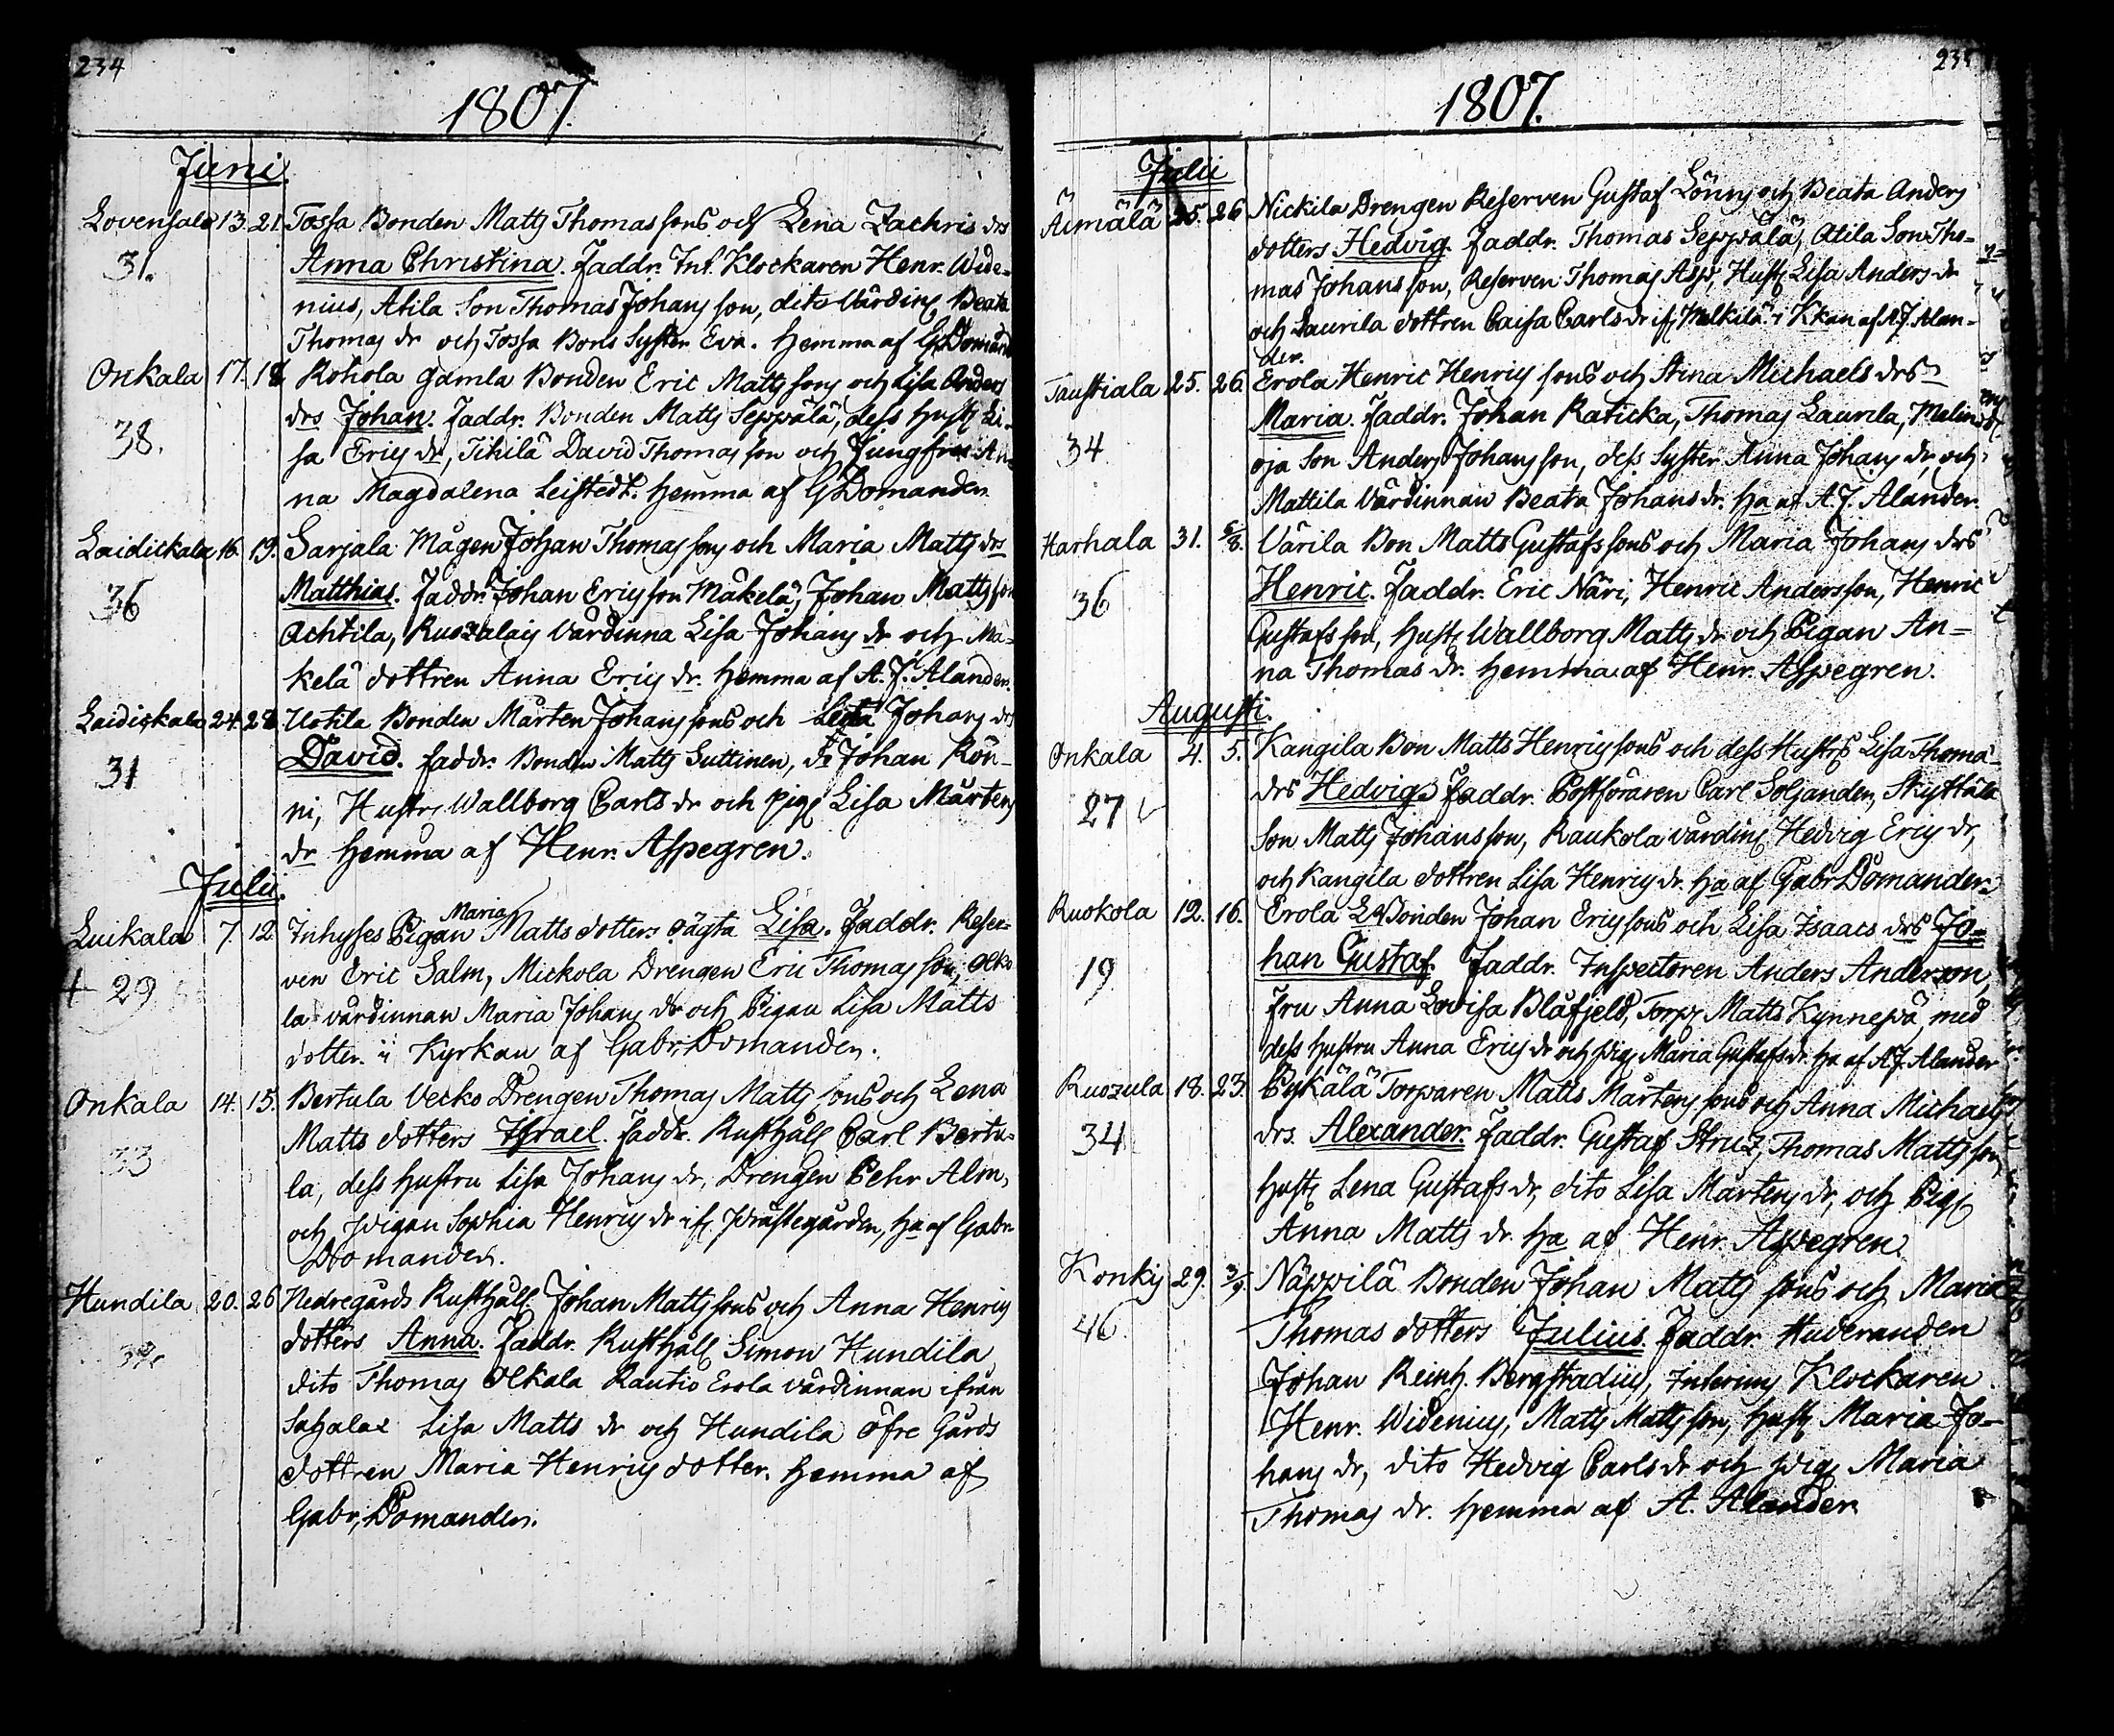 234
1807.
Juni.
Lovensala 13. 21. Tossa Bonden Matts Thomas sons och Lena Zachris drs
31. Anna Christina. Faddr. Int. Klockaren Henr. Wide-
nius, Atila Son Thomas Johans son, dito Värdinn Beata
Thomas dr och Tossa Bons Syster Eva. Hemma af G. Domander
Onkala 17. 18. Rohola gamla Bonden Eric Matts sons och Lisa Anders
drs Johan. Faddr. Bonden Matts Seppälä, dess Hust. Li-
38. sa Erics dr, Tikilä David Thomas son och Jungfru An-
na Magdalena Leistedt. Hemma af G Domander
Laidickala 16. 19. Sarjala Mågen Johan Thomas sons och Maria Matts drs
Matthias. Faddr. Johan Ericsson Mäkelä, Johan Matts son
36 Achtila, Ruozalais Värdinna Lisa Johans dr och Mä-
kelä dottren Anna Erics dr. Hemma af A. J. Alander.
Laidickala 24. 28. Uotila Bonden Mårten Johans sons och Johans drs
David. Faddr. Bonden Matts Suttinen, Johan Rön-
31 ni, Hustr. Wallborg Carls dr och pig. Lisa Mårtens
dr Hemma af Henr. Aspegren.
Julii.
Luikala 7. 12. Inhyses Pigan Maria Matts dotters oägta Lisa. Faddr. Reser-
+ 29 ven Eric Salm, Mickola Drengen Eric Thomas son, Olko
la värdinnan Maria Johans dr och Pigan Lisa Matts
dotter. i Kyrkan af Gabr. Domander.
Onkala 14. 15. Bertula Vecko Drengen Thomas Matts sons och Lena
Matts dotters Israel. Faddr. Rusthåll Carl Bertu-
33 la, dess hustru Lisa Johans dr, Drengen Pehr Alm,
och pigan Sophia Henrics dr ifr. Prästegården, Ha af Gabr.
Domander.
Hundila 20. 26 Nedregårds Rusthåll Johan Matts sons och Anna Henrics
dotters Anna. Faddr. Rusthåll Simon Hundila
dito Thomas Olkala Rautio Erola värdinnan ifrån
Sahalax Lisa Matts dr och Hundila öfre Gårds
dottren Maria Henrics dotter. Hemma af
Gabr. Domander.
1807.
Julii
Äimälä 25. 26 Nickila Drengen Reserven Gustaf Lönn och Beata Anders
dotters Hedvig. Faddr. Thomas Seppälä, Atila Son Tho-
mas Johans son, Reserven Thomas Asp, Hust. Lisa Anders dr
och Laurila dottren Caisa Carls dr ifr. Mälkilä i Kkan af A. J. Alan-
der.
Taustiala 25. 26. Erola Henric Henrics sons och Stina Michaels drs
Maria. Faddr. Johan Raticka, Thomas Laurila, Malin
34 oja Son Anders Johans son, dess Syster Anna Johans dr, och
Mattila Värdinnan Beata Johans dr. Ha af A. J. Alander.
Harhala 31. 6/8. Värila Bon Matts Gustafs sons och Maria Johans drs
36 Henric. Faddr. Eric Näri, Henric Andersson, Henric
Gustafs son, Hust. Wallborg Matts dr och Pigan An-
na Thomas dr. Hemma af Henr. Aspegren.
Augusti.
Onkala 4. 5. Kangila Bon Matts Henrics sons och dess Hustrs Lisa Thoma-
27 drs Hedvig. Faddr. Postföraren Carl Soljander, Skyttälä
Son Matts Johansson, Raukola värdin. Hedvig Erics dr,
och Kangila dottren Lisa Henrics dr. Ha af Gabr Domander.
Ruokola 12. 16. Erola Bonden Johan Erics sons och Lisa Isaacs drs Jo-
19 han Gustaf. Faddr. Inspectoren Anders Anderson,
Fru Anna Lovisa Blåfjeld, Torp. Matts Kynnepä, med
dess hustru Anna Erics dr och pig. Maria Gustafs dr. Ha af A J. Alander
Ruozula 18. 23. Pykälä Torparen Matts Mårtens sons och Anna Michaels
34 drs. Alexander. Faddr. Gustaf Struz, Thomas Matts son,
Hust. Lena Gustafs dr, dito Lisa Mårtens dr, och Pig.
Anna Matts dr. Ha af Henr. Aspegren.
Konkis 29. 3/9. Näppilä Bonden Johan Matts sons och Maria
46. Thomas dotters Julius. Faddr. Studeranden
Johan Reinh. Bergstadius, Interims Klockaren
Henr. Widenius, Matts Matts son, Hust. Maria Jo-
hans dr, dito Hedvig Carls dr och pig. Maria
Thomas dr. Hemma af A. Alander.